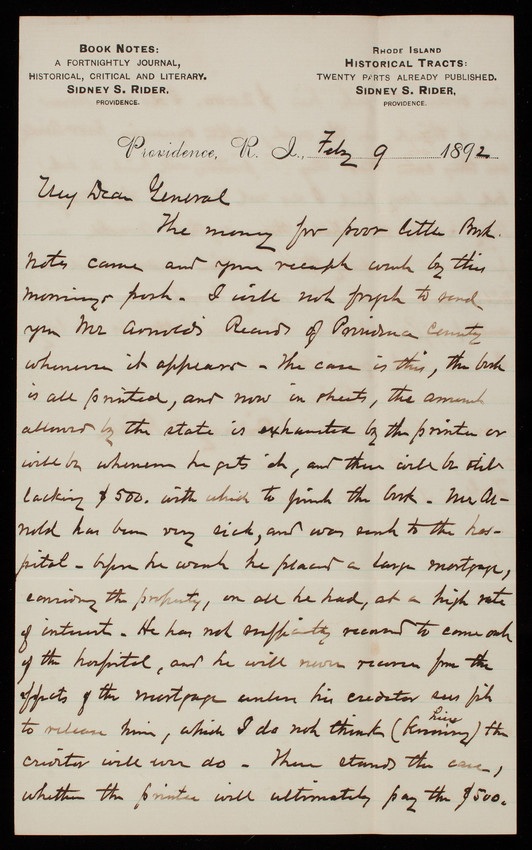 BOOK NOTES:
A FORTNIGHTLY JOURNAL,
HISTORICAL, CRITICAL AND LITERARY.
SIDNEY S. RIDER.
PROVIDENCE.
RHODE ISLAND
HISTORICAL TRACTS:
TWENTY PARTS ALREADY PUBLISHED.
SIDNEY S. RIDER,
PROVIDENCE.
Providence, R. I., Feby 9 1892
My Dear General
The money for poor little Book
Notes came and your receipt went by this
mornings post. I will not forget to send
you Mr Arnold's Records of Providence County
whenever it appears - The case is this, the book
is all printed, and now in sheets, the amount
allowed by the state is exhausted by the printer or
will be whenever he gets it, and there will be still
lacking $500. with which to finish the book. Mr Ar-
nold has been very sick, and was sent to the hos-
pital - before he went he placed a large mortgage,
considering the property, on all he had, at a high rate
of interest. He has not sufficiently recovered to come out
of the hospital, and he will never recover from the
effects of the mortgage unless his creditor sees fit
to release him, which I do not think (knowing him) the
creditor will ever do - There stands the case,
whether the printer will ultimately pay the $500.